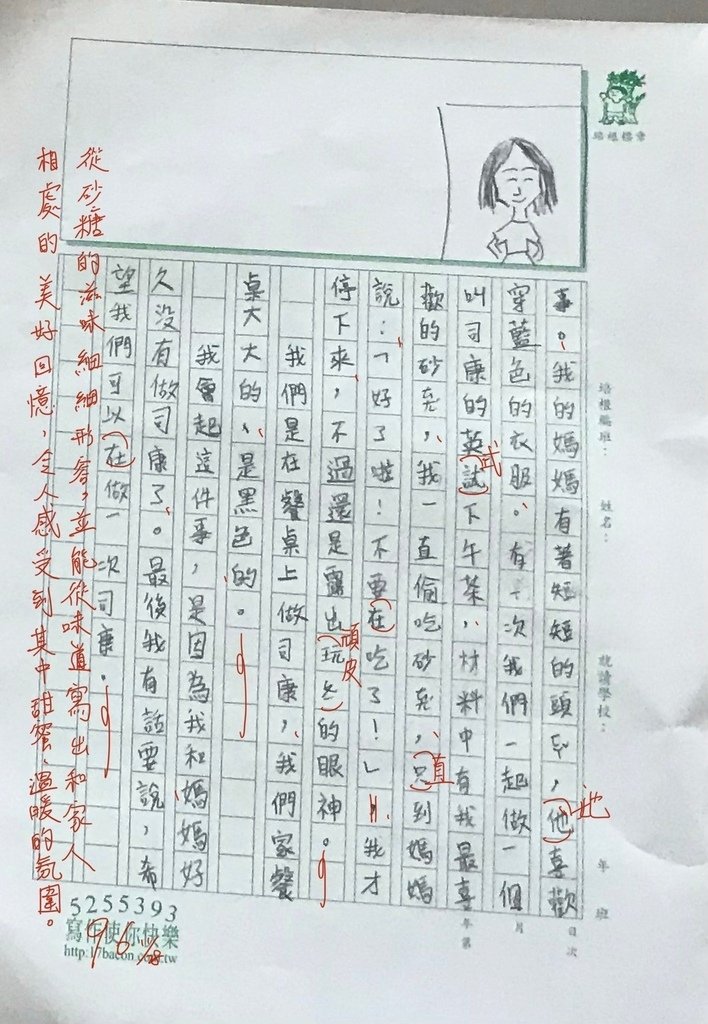 事。我的媽媽有著短短的頭ㄈㄚˇ,他喜歡
穿藍色的衣服。有一次我們一起做一個
叫司康的英試下午茶,材料中有我最喜
歡的砂ㄊㄤˊ,我一直偷吃砂ㄊㄤˊ,ㄓˊ到媽媽
說:「好了啦!不要在吃了!」我才
停下來,不過還是露出玩ㄆㄧˊ的眼神。
我們是在餐桌上做司康,我們家餐
桌大大的,是黑色的。
我會起這件事,是因為我和媽媽好
久沒有做司康了。最後我有話要說,希
望我們可以在做一次司康。
式
直
頑皮
她
從砂糖的滋味細細形容,並能從味道寫出和家人
相處的美好回憶,令人感受到其中甜蜜、溫暖的氛圍。
96
培根文章
培根縣班:
姓名:
就讀學校:
年 班
年 月 日
第 次
5255393
寫作使你快樂